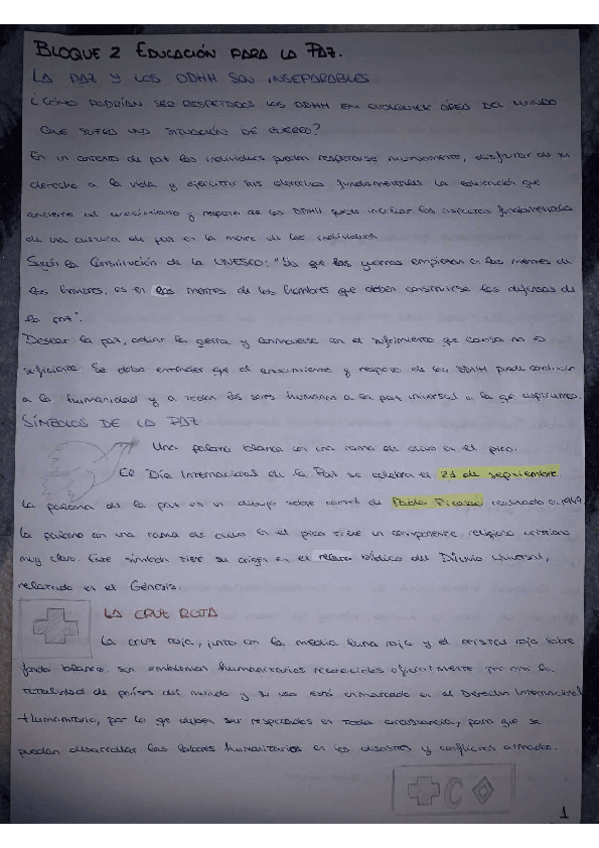 BLOQUE 2 EDUCACIÓN PARA LA PAZ.
LA PAZ Y LOS DDHH SON INSEPARABLES
¿CÓMO PODRÍAN SER RESPETADOS LOS DDHH EN CUALQUIER ÁREA DEL MUNDO
QUE SUFRA UNA SITUACIÓN DE GUERRA?
En un contexto de paz los individuos pueden respetarse mutuamente, disfrutar de su
derecho a la vida y ejercitar sus derechos fundamentales. La educación que
concierne al conocimiento y respeto de los DDHH puede inculcar los aspectos fundamentales
de una cultura de paz en la mente de los individuos.
Según la Constitución de la UNESCO: "Ya que las guerras empiezan en las mentes de
los hombres, es en las mentes de los hombres que deben construirse las defensas de
la paz".
Desear la paz, odiar la guerra y conmoverse con el sufrimiento que causa no es
suficiente. Se debe entender que el conocimiento y respeto de los DDHH puede conducir
a la humanidad y a todos los seres humanos a la paz universal a la que aspiramos.
SÍMBOLOS DE LA PAZ
Una paloma blanca con una rama de olivo en el pico.
El Día Internacional de la Paz se celebra el 21 de septiembre.
La paloma de la paz es un dibujo sobre cartel de Pablo Picasso realizado en 1949.
La paloma con una rama de olivo en el pico tiene un componente religioso cristiano
muy claro. Este símbolo tiene su origen en el relato bíblico del Diluvio Universal,
relatado en el Génesis.
LA CRUZ ROJA
La cruz roja, junto con la media luna roja y el cristal rojo sobre
fondo blanco, son emblemas humanitarios reconocidos oficialmente por casi la
totalidad de países del mundo y su uso está enmarcado en el Derecho Internacional
Humanitario, por lo que deben ser respetados en toda circunstancia, para que se
puedan desarrollar las labores humanitarias en los desastres y conflictos armados.
1